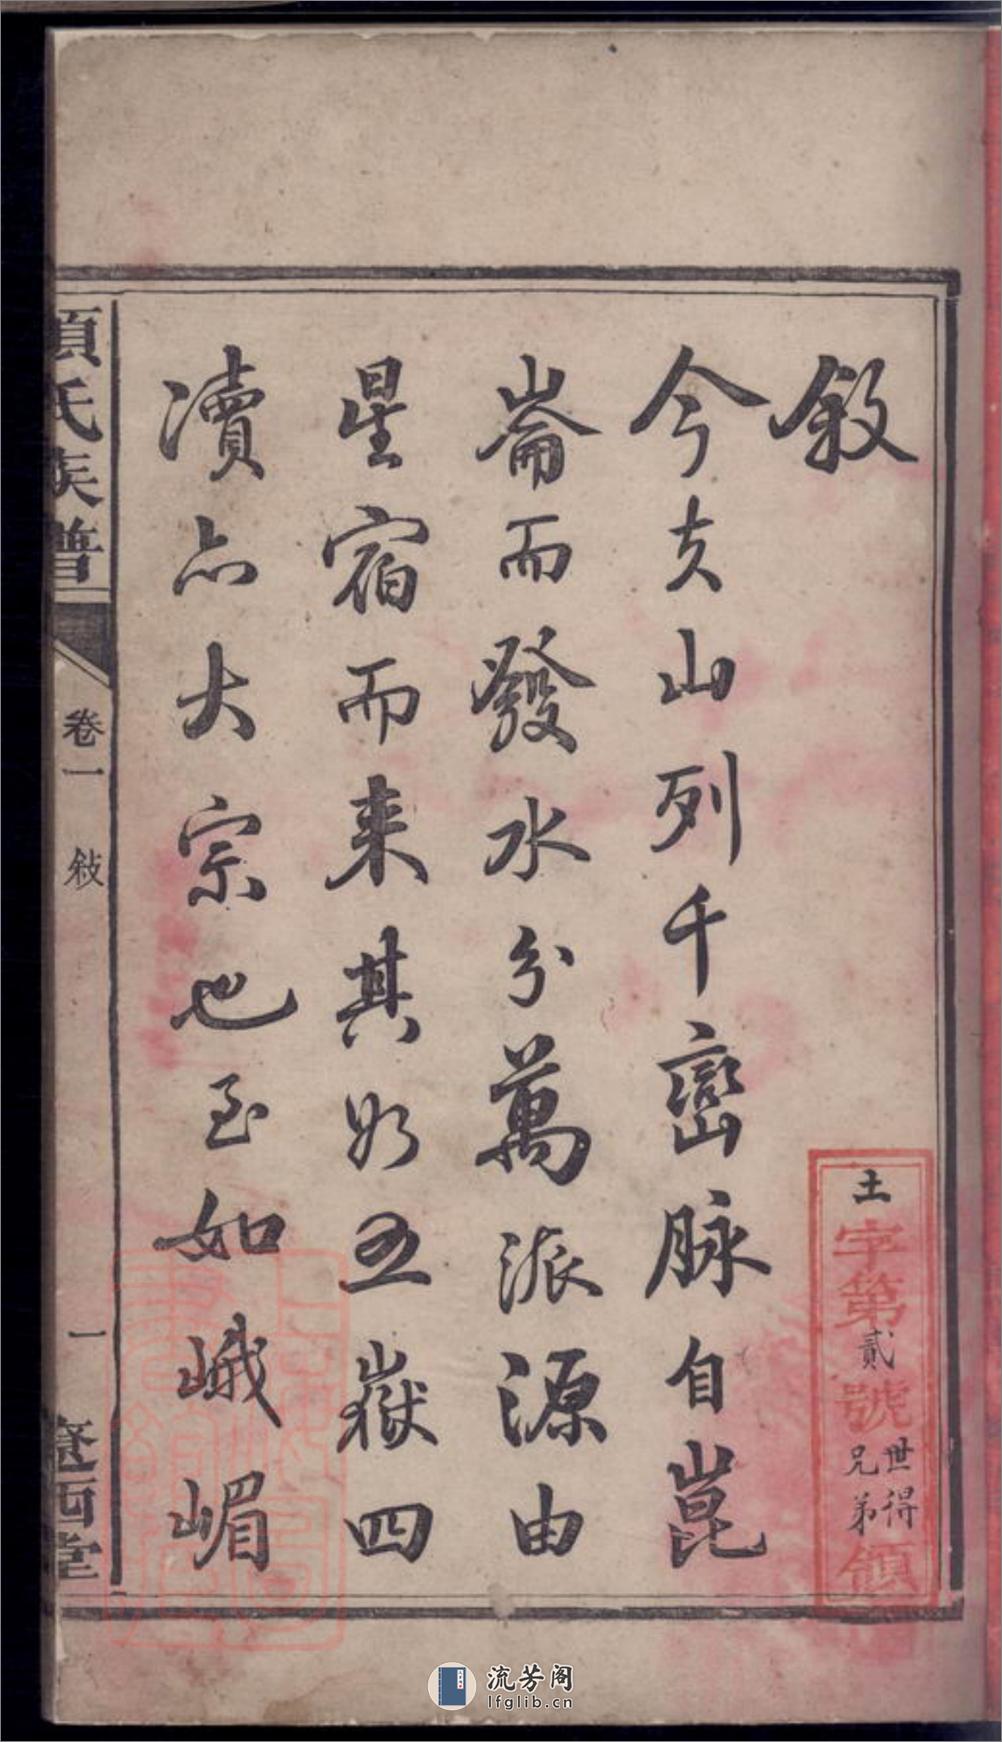 敘
今夫山列千巒脉自崑
崙而發水分萬派源由
星宿而来其五嶽四
瀆亦大宗也至如峨嵋
土字第貳號世得兄弟領
項氏族譜
卷一 敍
一
遼西堂
上海圖書館藏
流芳阁
lfglib.cn